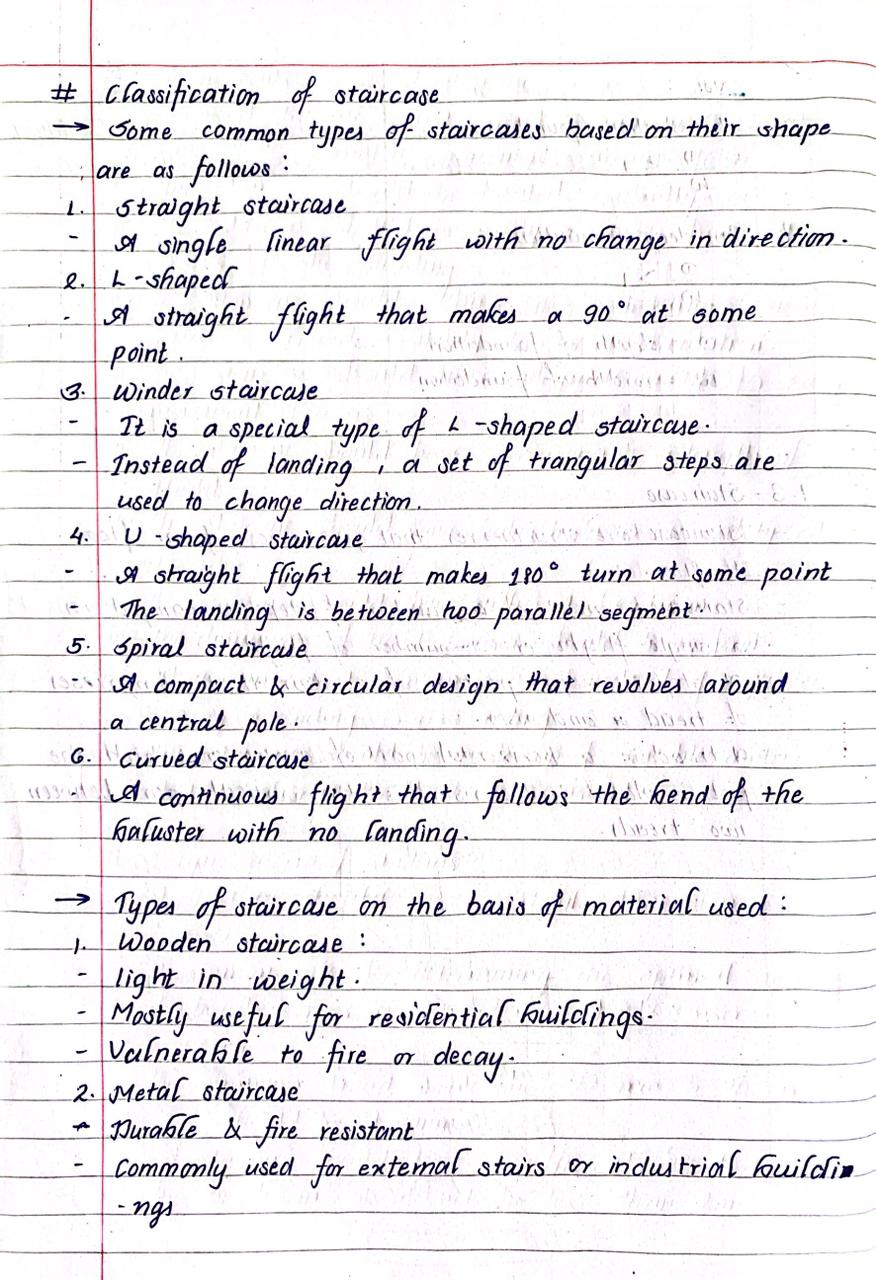 # Classification of staircase
→ Some common types of staircases based on their shape
are as follows:
1. Straight staircase
- A single linear flight with no change in direction.
2. L-shaped
- A straight flight that makes a 90° at some
point.
3. Winder staircase
- It is a special type of L-shaped staircase.
- Instead of landing, a set of trangular steps are
used to change direction.
4. U-shaped staircase
- A straight flight that makes 180° turn at some point
- The landing is between two parallel segment.
5. Spiral staircase
- A compact & circular design that revolves around
a central pole.
6. Curved staircase
- A continuous flight that follows the bend of the
baluster with no landing.
→ Types of staircase on the basis of material used:
1. Wooden staircase:
- light in weight.
- Mostly useful for residential buildings.
- Vulnerable to fire or decay.
2. Metal staircase
- Durable & fire resistant
- Commonly used for external stairs or industrial buildin
-ngs